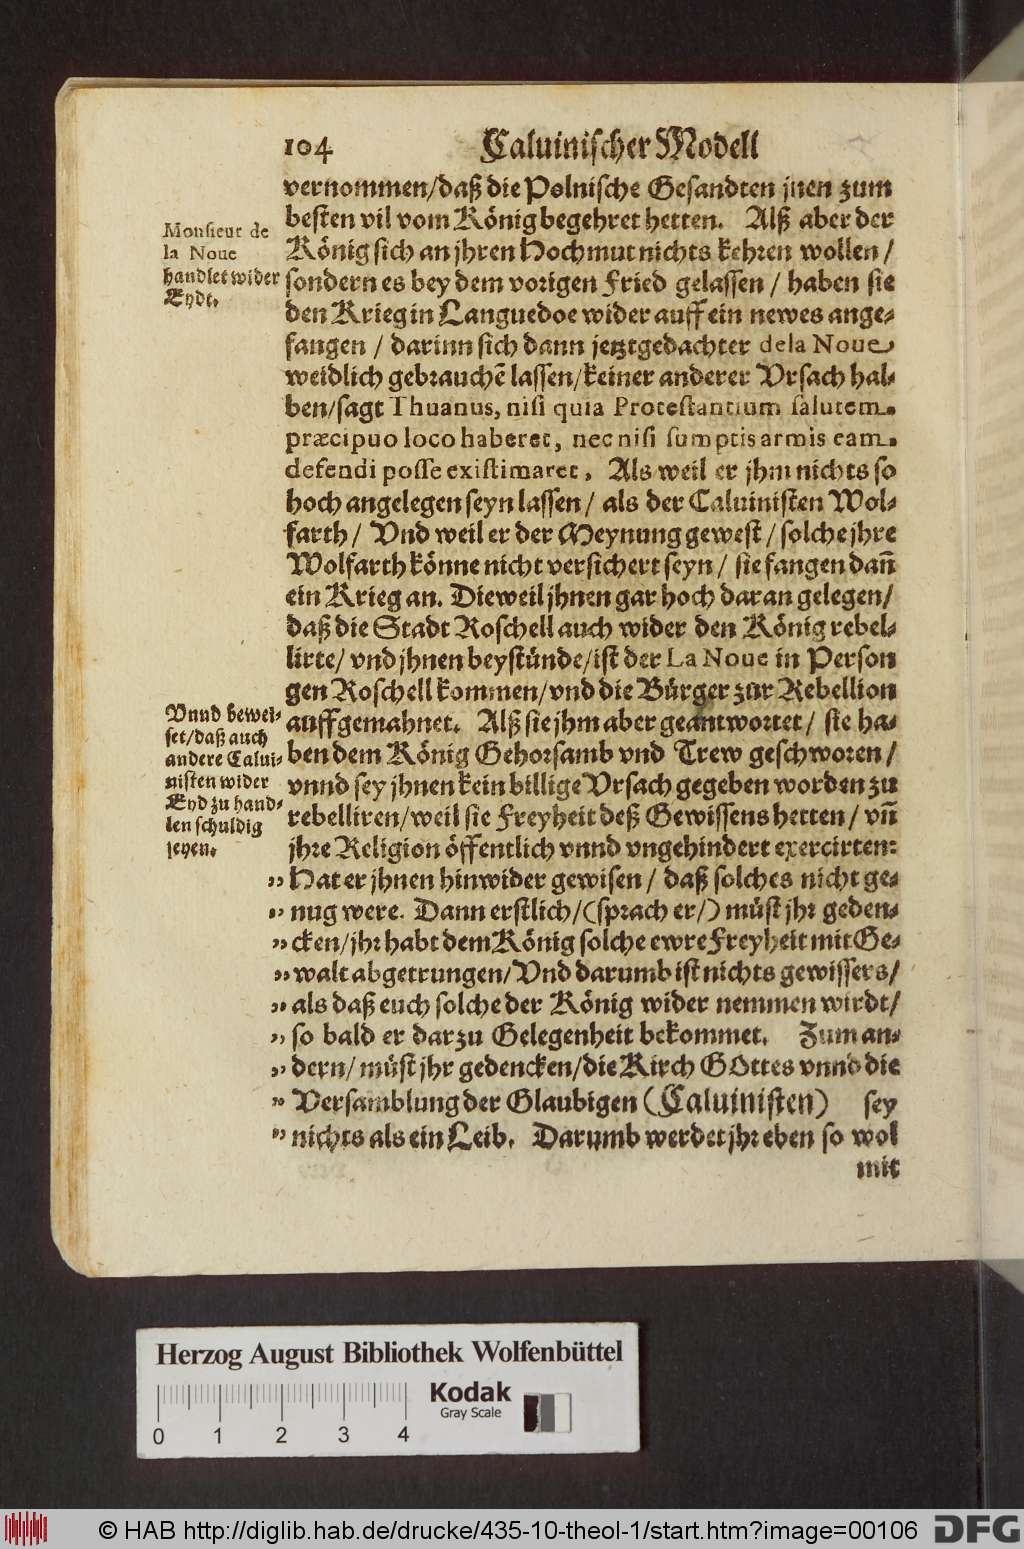 104 Caluinischer Modell
vernommen/daß die Polnische Gesandten jnen zum
besten vil vom König begehret hetten. Alß aber der
König sich an jhren Hochmut nichts kehren wollen/
sondern es bey dem vorigen Fried gelassen / haben sie
den Krieg in Languedoe wider auff ein newes ange-
fangen / darinn sich dann jetztgedachter de la Noue
weidlich gebrauchẽ lassen/keiner anderer Vrsach hal-
ben/sagt Thuanus, nisi quia Protestantium salutem
præcipuo loco haberet, nec nisi sumptis armis eam
defendi posse existimaret. Als weil er jhm nichts so
hoch angelegen seyn lassen / als der Caluinisten Wol-
farth / Vnd weil er der Meynung gewest / solche jhre
Wolfarth könne nicht versichert seyn / sie fangen dañ
ein Krieg an. Dieweil jhnen gar hoch daran gelegen/
daß die Stadt Roschell auch wider den König rebel-
lirte/ vnd jhnen beystünde/ist der La Noue in Person
gen Roschell kommen/vnd die Bürger zur Rebellion
auffgemahnet. Alß sie jhm aber geantwortet / sie ha-
ben dem König Gehorsamb vnd Trew geschworen /
vnnd sey jhnen kein billige Vrsach gegeben worden zu
rebelliren/weil sie Freyheit deß Gewissens hetten / vñ
jhre Religion öffentlich vnnd vngehindert exercirten:
„ Hat er jhnen hinwider gewisen / daß solches nicht ge-
„ nug were. Dann erstlich/(sprach er/) müst jhr geden-
„ cken/jhr habt dem König solche ewre Freyheit mit Ge-
„ walt abgetrungen/Vnd darumb ist nichts gewissers/
„ als daß euch solche der König wider nemmen wirdt/
„ so bald er darzu Gelegenheit bekommet. Zum an-
„ dern/ müst jhr gedencken/die Kirch GOttes vnnd die
„ Versamblung der Glaubigen (Caluinisten) sey
„ nichts als ein Leib. Darumb werdet jhr eben so wol
mit
Monsieur de
la Noue
handlet wider
Eydt.
Vnnd bewei-
set/daß auch
andere Calui-
nisten wider
Eyd zu hand-
len schuldig
seyen.
Herzog August Bibliothek Wolfenbüttel
Kodak
Gray Scale
0 1 2 3 4
© HAB http://diglib.hab.de/drucke/435-10-theol-1/start.htm?image=00106
DFG